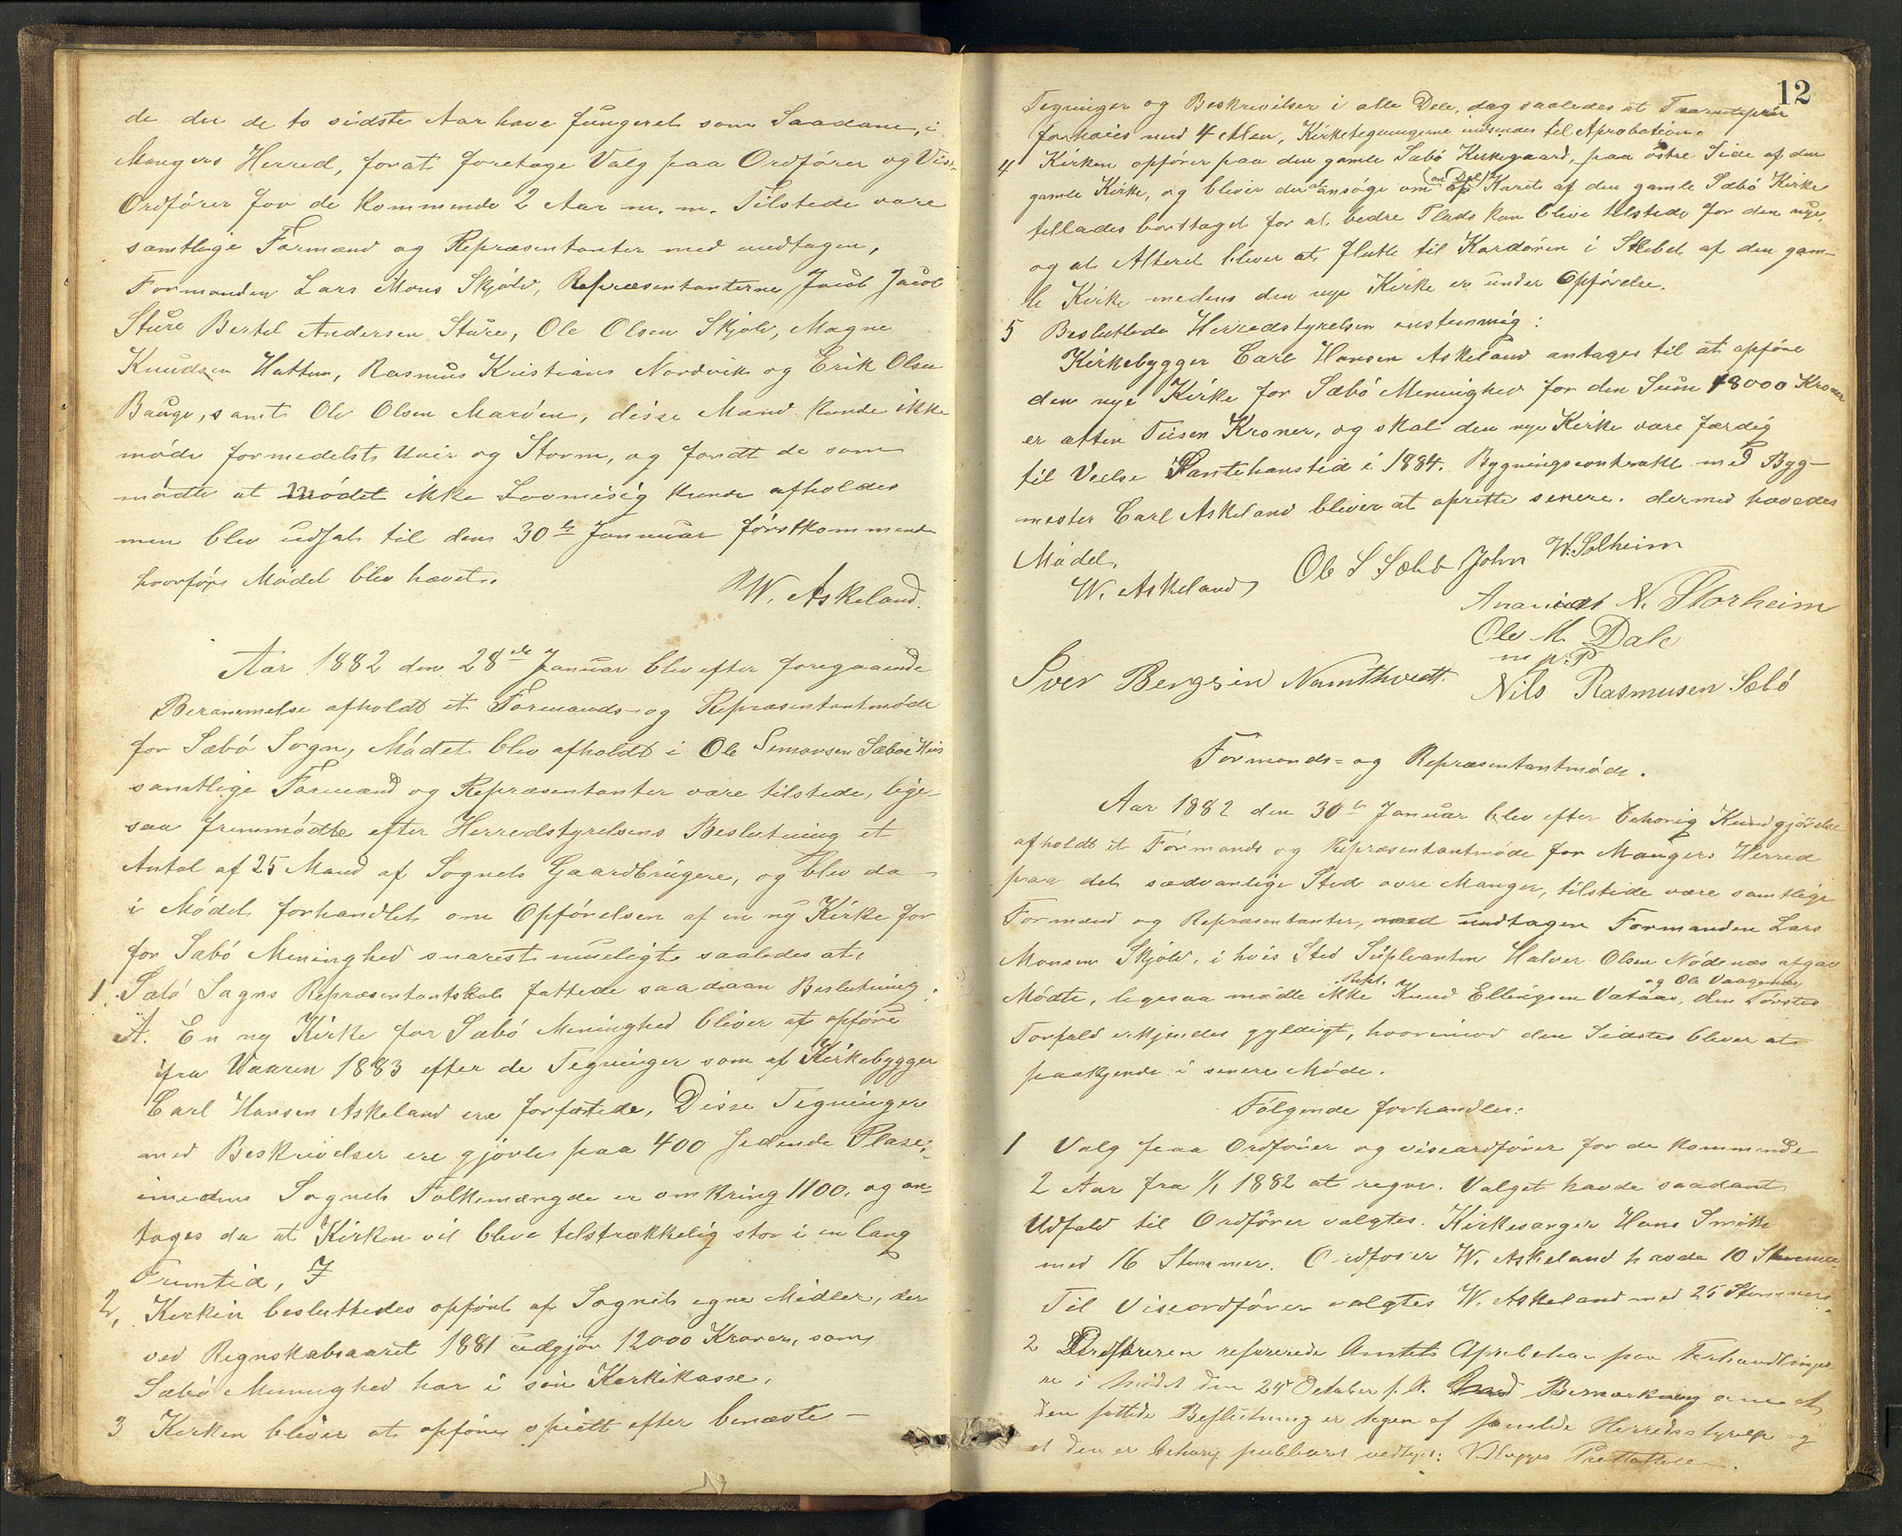 de der de to sidste Aar have fungeret som Saadane, i
Mangers Herred, forat foretage Valg paa Ordfører og Vise-
Ordfører for de kommende 2 Aar m. m. Tilstede vare
samtlige Formænd og Repræsentanter med undtagen,
Formanden Lars Mons Skjølv, Repræsentanterne Jacob Jacob
Sture Bertel Andersen Sture, Ole Olsen Skjolv, Magne
Knudsen Hatten, Rasmus Kristians Nordvik og Erik Olsen
Bauge, samt Ole Olsen Marøen, disse Mænd kunde ikke
møde formedelst Uveir og Storm, og fandt de som
mødte at Mødet ikke Lovmæsig kunde afholdes
men blev udsat til den 30te Januar førstkommende
hvorfor Mødet blev hævet.
W. Askeland.
Aar 1882 den 28de Januar blev efter foregaaende
Berammelse afholdt et Formands- og Repræsentantmøde
for Sæbø Sogn, Mødet blev afholdt i Ole Simonsen Sæbøe Hus
samtlige Formænd og Repræsentanter vare tilstede, lige-
saa fremmødte efter Herredstyrelsens Beslutning et
Antal af 25 Mand af Sognets Gaardbrugere, og blev da
i Mødet forhandlet om Opførelsen af en ny Kirke for
for Sæbø Meninghed snarest mueligt saaledes at,
1. Sæbø Sogns Repræsentantskab fattede saadaan Beslutning:
A. En ny Kirke for Sæbø Meninghed bliver at opføre
ifra Vaaren 1883 efter de Tegninger som af Kirkebygger
Carl Hansen Askeland ere forfattede, Disse Tegninger
med Beskrivelser ere gjorte paa 400 sidende Plase,
imedens Sognets Folkemængde er omkring 1100, og an-
tages da at Kirken vil blive tilstrækkelig stor i en lang
Fremtid,
2, Kirken besluttedes opført af Sognets egne Midler, der
ved Regnskabsaaret 1881 udgjør 12000 Kroner, som
Sæbø Meninghed har i sin Kirkekasse,
3 Kirken bliver at opføre opsett efter benævte
12
Tegninger og Beskrivelser i alle Dele, dog saaledes at Taarnspir
forhøies med 4 Alen, Kirketegningerne indsendes til Aprobation.
4 Kirken opføres paa den gamle Sæbø Kirkegaard, paa østre Side af den
gamle Kirke, og bliver der at ansøge om (en Del) af Karet af den gamle Sæbø Kirke
tillades borttaget for at bedre Plads kan blive tilstede for den nye
og at Alteret bliver at flutte til Kordøren i Skibet af den gam-
le Kirke medens den nye Kirke er under Opførelse.
5 Besluttede Herredstyrelsen enstemmig:
Kirkebygger Carl Hansen Askeland antages til at opføre
den nye Kirke for Sæbø Meninghed for den Sum 18000 Kroner
er atten Tusen Kroner, og skal den nye Kirke være færdig
til Vielse Santehanstid i 1884. Bygningscontrakt med Byg-
mester Carl Askeland bliver at oprette senere. dermed hævedes
Mødet,
W. Askeland, Ole S Sæbø John W. Solheim
Ananias N. Storheim
Ole M. Dale
m p. P
Iver Bergsin Namthvedt. Nils Rasmusen Sæbø
Formonds- og Repræsentantmøde.
Aar 1882 den 30te Januar blev efter behørig Kundgjørelse
afholdt et Formands og Repræsentantmøde for Mangers Herred
paa det sædvanlige Sted øvre Manger, tilstede vare samtlige
Formænd og Repræsentanter, med undtagen Formanden Lars
Monsen Skjølv, i hvis Sted Suplianten Halvor Olsen Nødenæs afgav
Repr. og Ole Vaagenes
Mødte, legesaa mødte ikke Knud Ellingsen Vataae, den Førstes
Forfald erkjendes gyldigt, hvorimod den Sidstes bliver at
paakjende i senere Møde.
Følgende forhandles:
1 Valg paa Ordfører og viseordfører for de kommende
2 Aar fra 1/1 1882 at regne. Valget havde saadant
Udfald til Ordfører valgtes. Kirkesanger Hans Smith
med 16 Stemmer. Ordfører W. Askeland havde 10 Stemmer
Til Viseordfører valgtes W. Askeland med 25 Stemmer.
2 Ordføreren refererede Amtets Aprobation paa Forhandlinger
ne i Mødet den 24 October f. A. med Bemærkning om at
den fattede Beslutning er tagen af samlede Herredsstyrelse og
at den er behørig publiceret vedtaget: Vedlægges Protokollen.